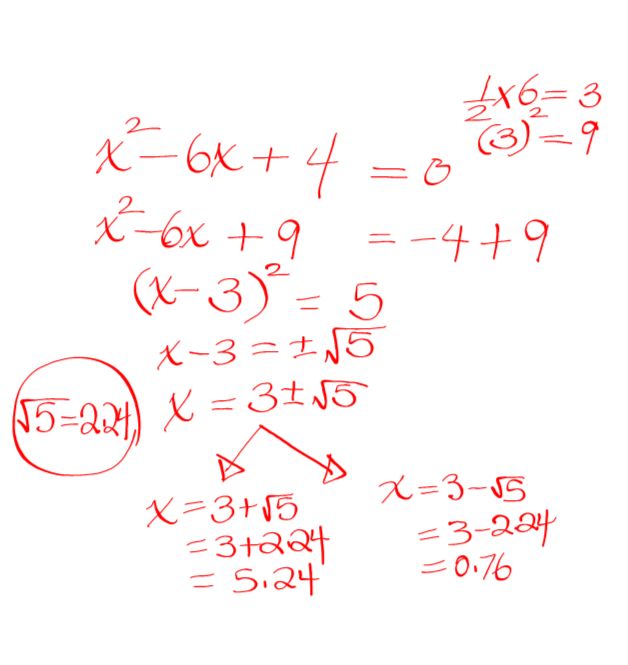 ½×6=3
(3)²=9
x²-6x+4 =0
x²-6x+9 =-4+9
(x-3)²=5
x-3=±√5
x=3±√5
√5=2.24,
x=3+√5
=3+2.24
=5.24
x=3-√5
=3-2.24
=0.76